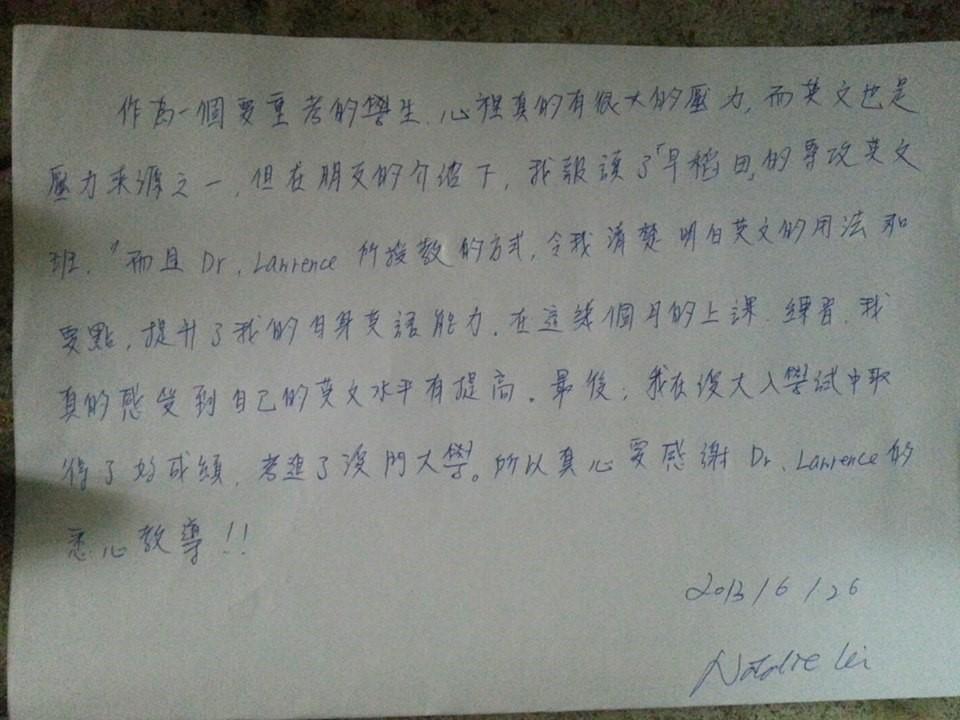 作為一個要重考的學生,心裡真的有很大的壓力,而英文也是
壓力來源之一,但在朋友的介紹下,我報讀了「早稻田」的專攻英文
班,而且 Dr. Lawrence 所授教的方式,令我清楚明白英文的用法和
要點,提升了我的自身英語能力.在這幾個月的上課.練習.我
真的感受到自己的英文水平有提高。最後,我在澳大入學試中取
得了好成績,考進了澳門大學。所以真心要感謝 Dr. Lawrence 的
悉心教導!!
2013/6/26
Natalie Lei